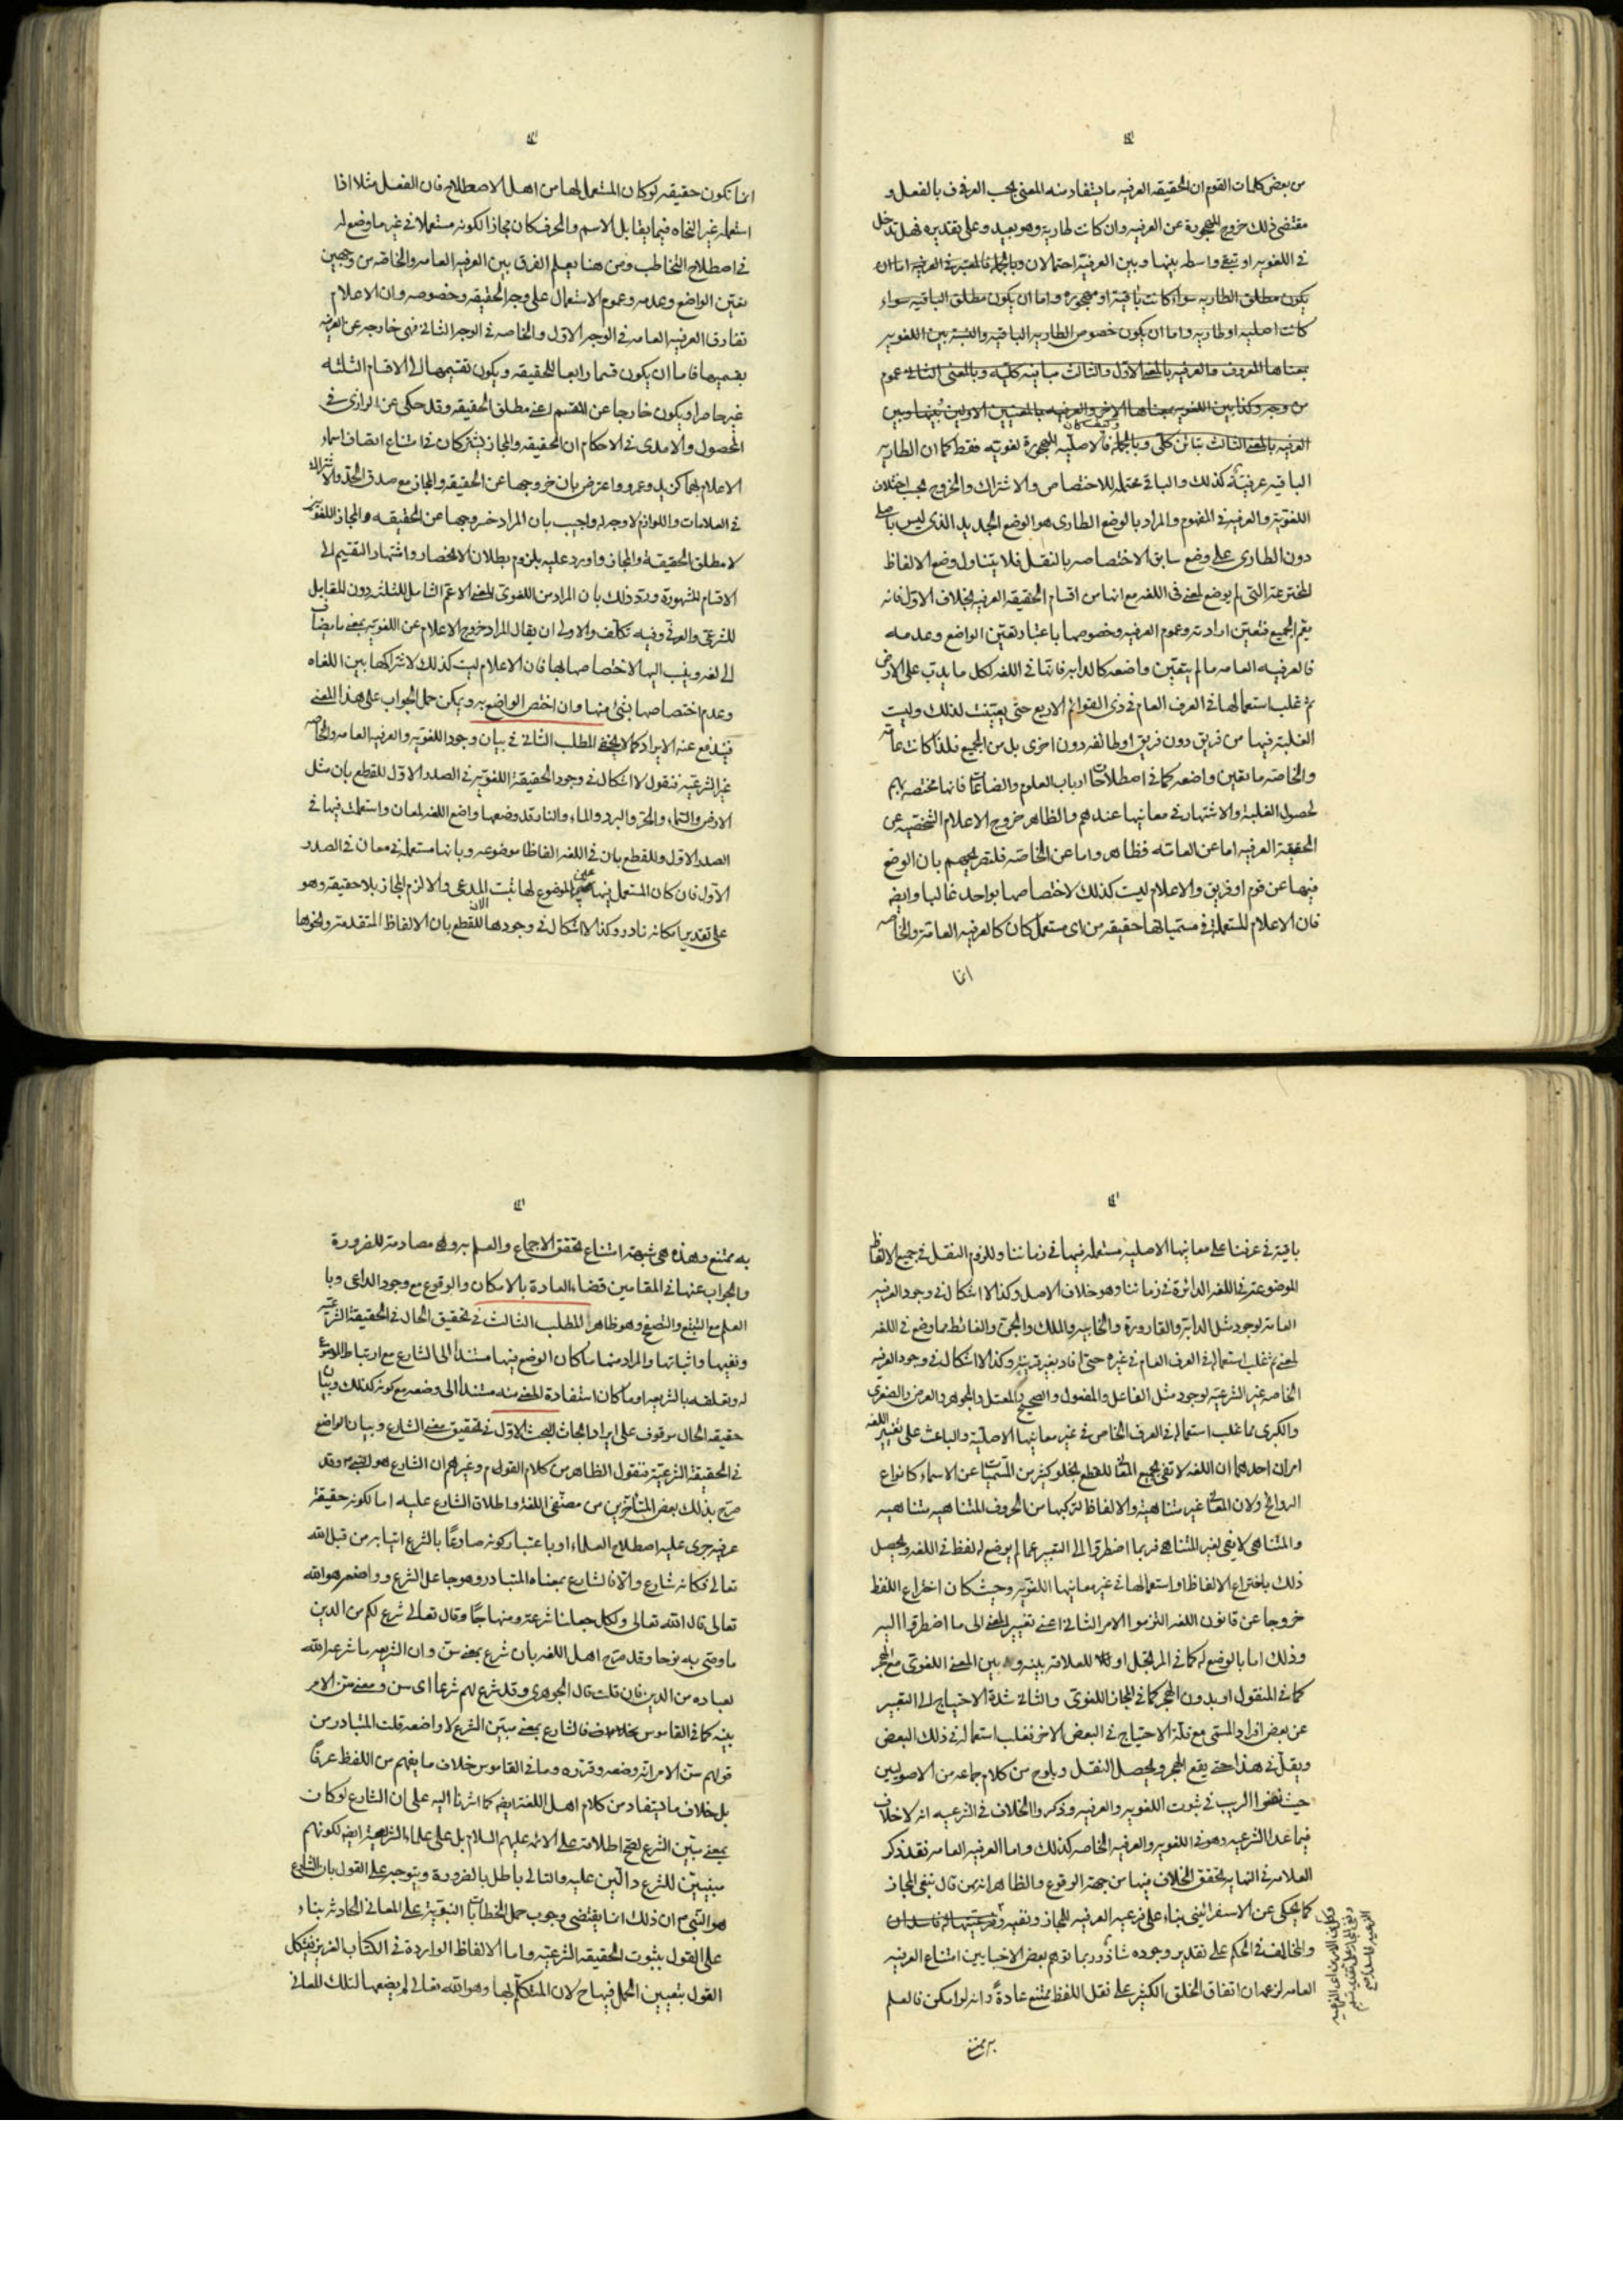 من بعض كلمات القوم ان الحقيقه العرفيه ما يستفاد منه المعنى بحسب العرف بالفعل و
مقتضى ذلك خروج المهجورة عن العرفيه وان كانت طارية وهو بعيد وعلى تقديره فهل تدخل
فى اللغويه او تبقى واسطه بينها وبين العرفية احتمالان وبالجملة فالمعتبر فى العرفيه اما ان
يكون مطلق الطاريه سواء كانت باقية او مهجوره واما ان يكون مطلق الباقيه سواء
كانت اصليه او طاريه واما ان يكون خصوص الطاريه الباقيه والنسبة بين اللغويه
بمعناها المعروف والعرفيه بالمعنى الاول والثالث مباينه كليه وبالمعنى الثانى عموم
من وجه وكذا بين اللغويه بمعناها الاخر والعرفيه بالمعنيين الاولين بينها وبين
العرفيه بالمعنى الثالث تباين كلى وبالجملة فالاصليه المهجورة لغويه فقط كما ان الطاريه
الباقيه عرفية كذلك والباقى محتمله للاختصاص والاشتراك والخروج بحسب اختلاف
اللغوية والعرفية فى المفهوم والمراد بالوضع الطارى هو الوضع الجديد الذى ليس باصلى
دون الطارى على وضع سابق لاختصاصه بالنقل فلا يتناول وضع الالفاظ
المخترعة التى لم يوضع لمعنى فى اللغه مع انها من اقسام الحقيقه العرفيه بخلاف الاول فانه
يعم الجميع فتعين ارادته وعموم العرفيه وخصوصها باعتبار تعين الواضع وعدمه
فالعرفيه العامه ما لم يتعين واضعه كالدابه فانها فى اللغه لكل ما يدب على الارض
ثم غلب استعمالها فى العرف العام فى ذى القوائم الاربع حتى تعينت لذلك وليست
الغلبة فيها من فريق دون فريق او طائفه دون اخرى بل من الجميع فلذا كانت عامه
والخاصه ما تعين واضعه كما فى اصطلاحات ارباب العلوم والصناعات فانها مختصه بهم
لحصول الغلبة والاشتهار فى معانيها عندهم والظاهر خروج الاعلام الشخصيه عن
الحقيقة العرفيه اما عن العامه فظاهر واما عن الخاصه فلتصريحهم بان الوضع
فيها عن قوم او فريق والاعلام ليست كذلك لاختصاصها بواحد غالبا وايضه
فان الاعلام المستعملة فى مسمياتها حقيقه من اى مستعمل كان كالعرفيه العامة والخاصه
انما
انما تكون حقيقه لو كان المستعمل لها من اهل الاصطلاح فان الفعل مثلا اذا
استعمله غير النحاه فيما يقابل الاسم والحرف كان مجازا لكونه مستعملا فى غير ما وضع له
فى اصطلاح التخاطب ومن هنا يعلم الفرق بين العرفيه العامه والخاصه من وجهين
تعين الواضع وعدمه وعموم الاستعمال على وجه الحقيقه وخصوصه وان الاعلام
تفارق العرفيه العامه فى الوجه الاول والخاصه فى الوجه الثانى فهى خارجه عن العرفيه
بقسميها فاما ان يكون قسما رابعا للحقيقه ويكون تقسيمها الى الاقسام الثلثه
غير حاصر او يكون خارجا عن المقسم اعنى مطلق الحقيقه وقد حكى عن الرازى فى
المحصول والامدى فى الاحكام ان الحقيقه والمجاز يشتركان فى امتناع اتصاف اسماء
الاعلام بهما كزيد وعمرو واعترض بان خروجها عن الحقيقه والمجاز مع صدق الحد والاشتراك
فى العلامات واللوازم لا وجه له واجيب بان المراد خروجها عن الحقيقه والمجاز اللغويين
لا مطلق الحقيقة والمجاز واورد عليه بلزوم بطلان الانحصار واشتهار التقسيم الى
الاقسام المشهورة ورد ذلك بان المراد من اللغوى المعنى الاعم الشامل للثلثه دون المقابل
للشرعى والعرفى وفيه تكلف والاولى ان يقال المراد خروج الاعلام عن اللغويه بمعنى ما يضاف
الى لغه وينسب اليها لاختصاصها بها فان الاعلام ليست كذلك لاشتراكها بين اللغاه
وعدم اختصاصها بشئ منها وان اختص الواضع به ويمكن حمل الجواب على هذا المعنى
فيندفع عنه الايراد كما لا يخفى المطلب الثانى فى بيان وجود اللغويه والعرفيه العامه والخاصه
غير الشرعيه فنقول لا اشكال فى وجود الحقيقة اللغويه فى الصدر الاول للقطع بان مثل
الارض والسماء والحر والبرد والماء والنار قد وضعها واضع اللغه لمعان واستعملت فيها فى
الصدر الاول وللقطع بان فى اللغه الفاظا موضوعه وبانها مستعمله فى معان فى الصدر
الاول فان كان المستعمل فيها عين الموضوع لها ثبت المدعى والا لزم المجاز بلا حقيقه وهو
على تقدير امكانه نادر وكذا لا اشكال فى وجودها الان للقطع بان الالفاظ المتقدمة ونحوها
باقية فى عرفنا على معانيها الاصلية مستعمله فيها فى زماننا وللزوم النقل فى جميع الالفاظ
الموضوعة فى اللغه الدائرة فى زماننا وهو خلاف الاصل وكذا لا اشكال فى وجود العرفيه
العامه لوجود مثل الدابة والقارورة والخابيه والملك والجن والغائط مما وضع فى اللغه
لمعنى ثم غلب استعماله فى العرف العام فى غيره حتى افاد بغير قرينه وكذا لا اشكال فى وجود العرفيه
الخاصه غير الشرعيه لوجود مثل الفاعل والمفعول والصحيح والمعتل والجوهر والعرض والصغرى
والكبرى مما غلب استعماله فى العرف الخاص فى غير معانيها الاصلية والباعث على تغيير اللغه
امران احدهما ان اللغه لا تفى بجميع المعانى للقطع بخلو كثير من المسميات عن الاسماء كانواع
الروائح ولان المعانى غير متناهية والالفاظ لتركبها من الحروف المتناهيه متناهيه
والمتناهى لا يفى بغير المتناهى فربما اضطروا الى التعبير عما لم يوضع له لفظ فى اللغه ويحصل
ذلك باختراع الالفاظ او استعمالها فى غير معانيها اللغويه وحيث كان اختراع اللفظ
خروجا عن قانون اللغه التزموا الامر الثانى اعنى تغيير المعنى الى ما اضطروا اليه
وذلك اما بالوضع له كما فى المرتجل او للعلاقه بينه وبين المعنى اللغوى مع الهجر
كما فى المنقول او بدون الهجر كما فى المجاز اللغوى والثانى شدة الاحتياج الى التعبير
عن بعض افراد المسمى مع قلة الاحتياج فى البعض الاخر فغلب استعماله فى ذلك البعض
ويقل فى هذا حتى يقع الهجر ويحصل النقل ويلوح من كلام جماعه من الاصوليين
حيث نفوا الريب فى ثبوت اللغويه والعرفيه وذكروا الخلاف فى الشرعيه انه لا خلاف
فيما عدا الشرعيه وهو فى اللغويه والعرفيه الخاصه كذلك واما العرفيه العامه فقد ذكر
العلامه فى النهايه تحقق الخلاف فيها من جهة الوقوع والظاهر انه ممن قال بنفى المجاز
كما يحكى عن الاسفرائينى بناء على فرعيه العرفيه للمجاز ونفيه
والمخالف فى الحكم على تقدير وجوده شاذ وربما توهم بعض الاخباريين امتناع العرفيه
العامه لزعمه ان اتفاق الخلق الكثير على نقل اللفظ ممتنع عادة وانه لو امكن فالعلم
به ممتنع
به ممتنع وهذه هى شبهة امتناع تحقق الاجماع والعلم به وهى مصادمة للضرورة
والجواب عنها فى المقامين قضاء العادة بالامكان والوقوع مع وجود الداعى وبا
العلم مع التتبع والتصفح وهو ظاهر المطلب الثالث فى تحقيق الحال فى الحقيقة الشرعيه
ونفيها واثباتها والمراد منها ما كان الوضع فيها مستندا الى الشارع مع ارتباط الموضوع
له وتعلقه بالشريعه او ما كان استفادة المعنى منه مستندا الى وضعه مع كونه كذلك وبيان
حقيقه الحال موقوف على ايراد ابحاث البحث الاول فى تحقيق معنى الشارع وبيان الواضع
فى الحقيقة الشرعيه فنقول الظاهر من كلام القوم وغيرهم ان الشارع هو النبى وقد
صرح بذلك بعض المتاخرين من مصنفى اللغة واطلاق الشارع عليه اما لكونه حقيقة
عرفيه جرى عليه اصطلاح العلماء او باعتبار كونه صادعا بالشرع اتيا به من قبل الله
تعالى فكانه شارع والا فالشارع بمعناه المتبادر وهو جاعل الشرع وواضعه هو الله
تعالى قال الله تعالى ولكل جعلنا شرعة ومنهاجا وقال تعالى شرع لكم من الدين
ما وصى به نوحا وقد صرح اهل اللغه بان شرع بمعنى سن وان الشريعه ما شرعه الله
لعباده من الدين فان قلت قال الجوهرى وقد شرع لهم شرعا اى سن ومعنى سن الامر
بينه كما فى القاموس فالشارع بمعنى مبين الشرع لا واضعه قلت المتبادر من
قولهم سن الامر انه وضعه وقرره وما فى القاموس خلاف ما يفهم من اللفظ عرفا
بل خلاف ما يستفاد من كلام اهل اللغة ايضه كما اشرنا اليه على ان الشارع لو كان
بمعنى مبين الشرع لصح اطلاقه على الائمه عليهم السلام بل على علماء الشريعة ايضه لكونهم
مبينين للشرع دالين عليه والتالى باطل بالضرورة ويتوجه على القول بان الشارع
هو النبى ان ذلك انما يقتضى وجوب حمل الخطابات النبوية على المعانى الحادثه بناء
على القول بثبوت الحقيقه الشرعيه واما الالفاظ الوارده فى الكتاب العزيز فيشكل
القول بتعيين الحمل فيها ح لان المتكلم بها وهو الله تعالى لم يضعها لتلك المعانى